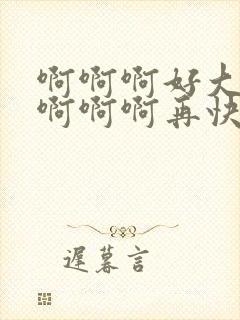 啊啊啊好大
啊啊啊再快
遲暮言